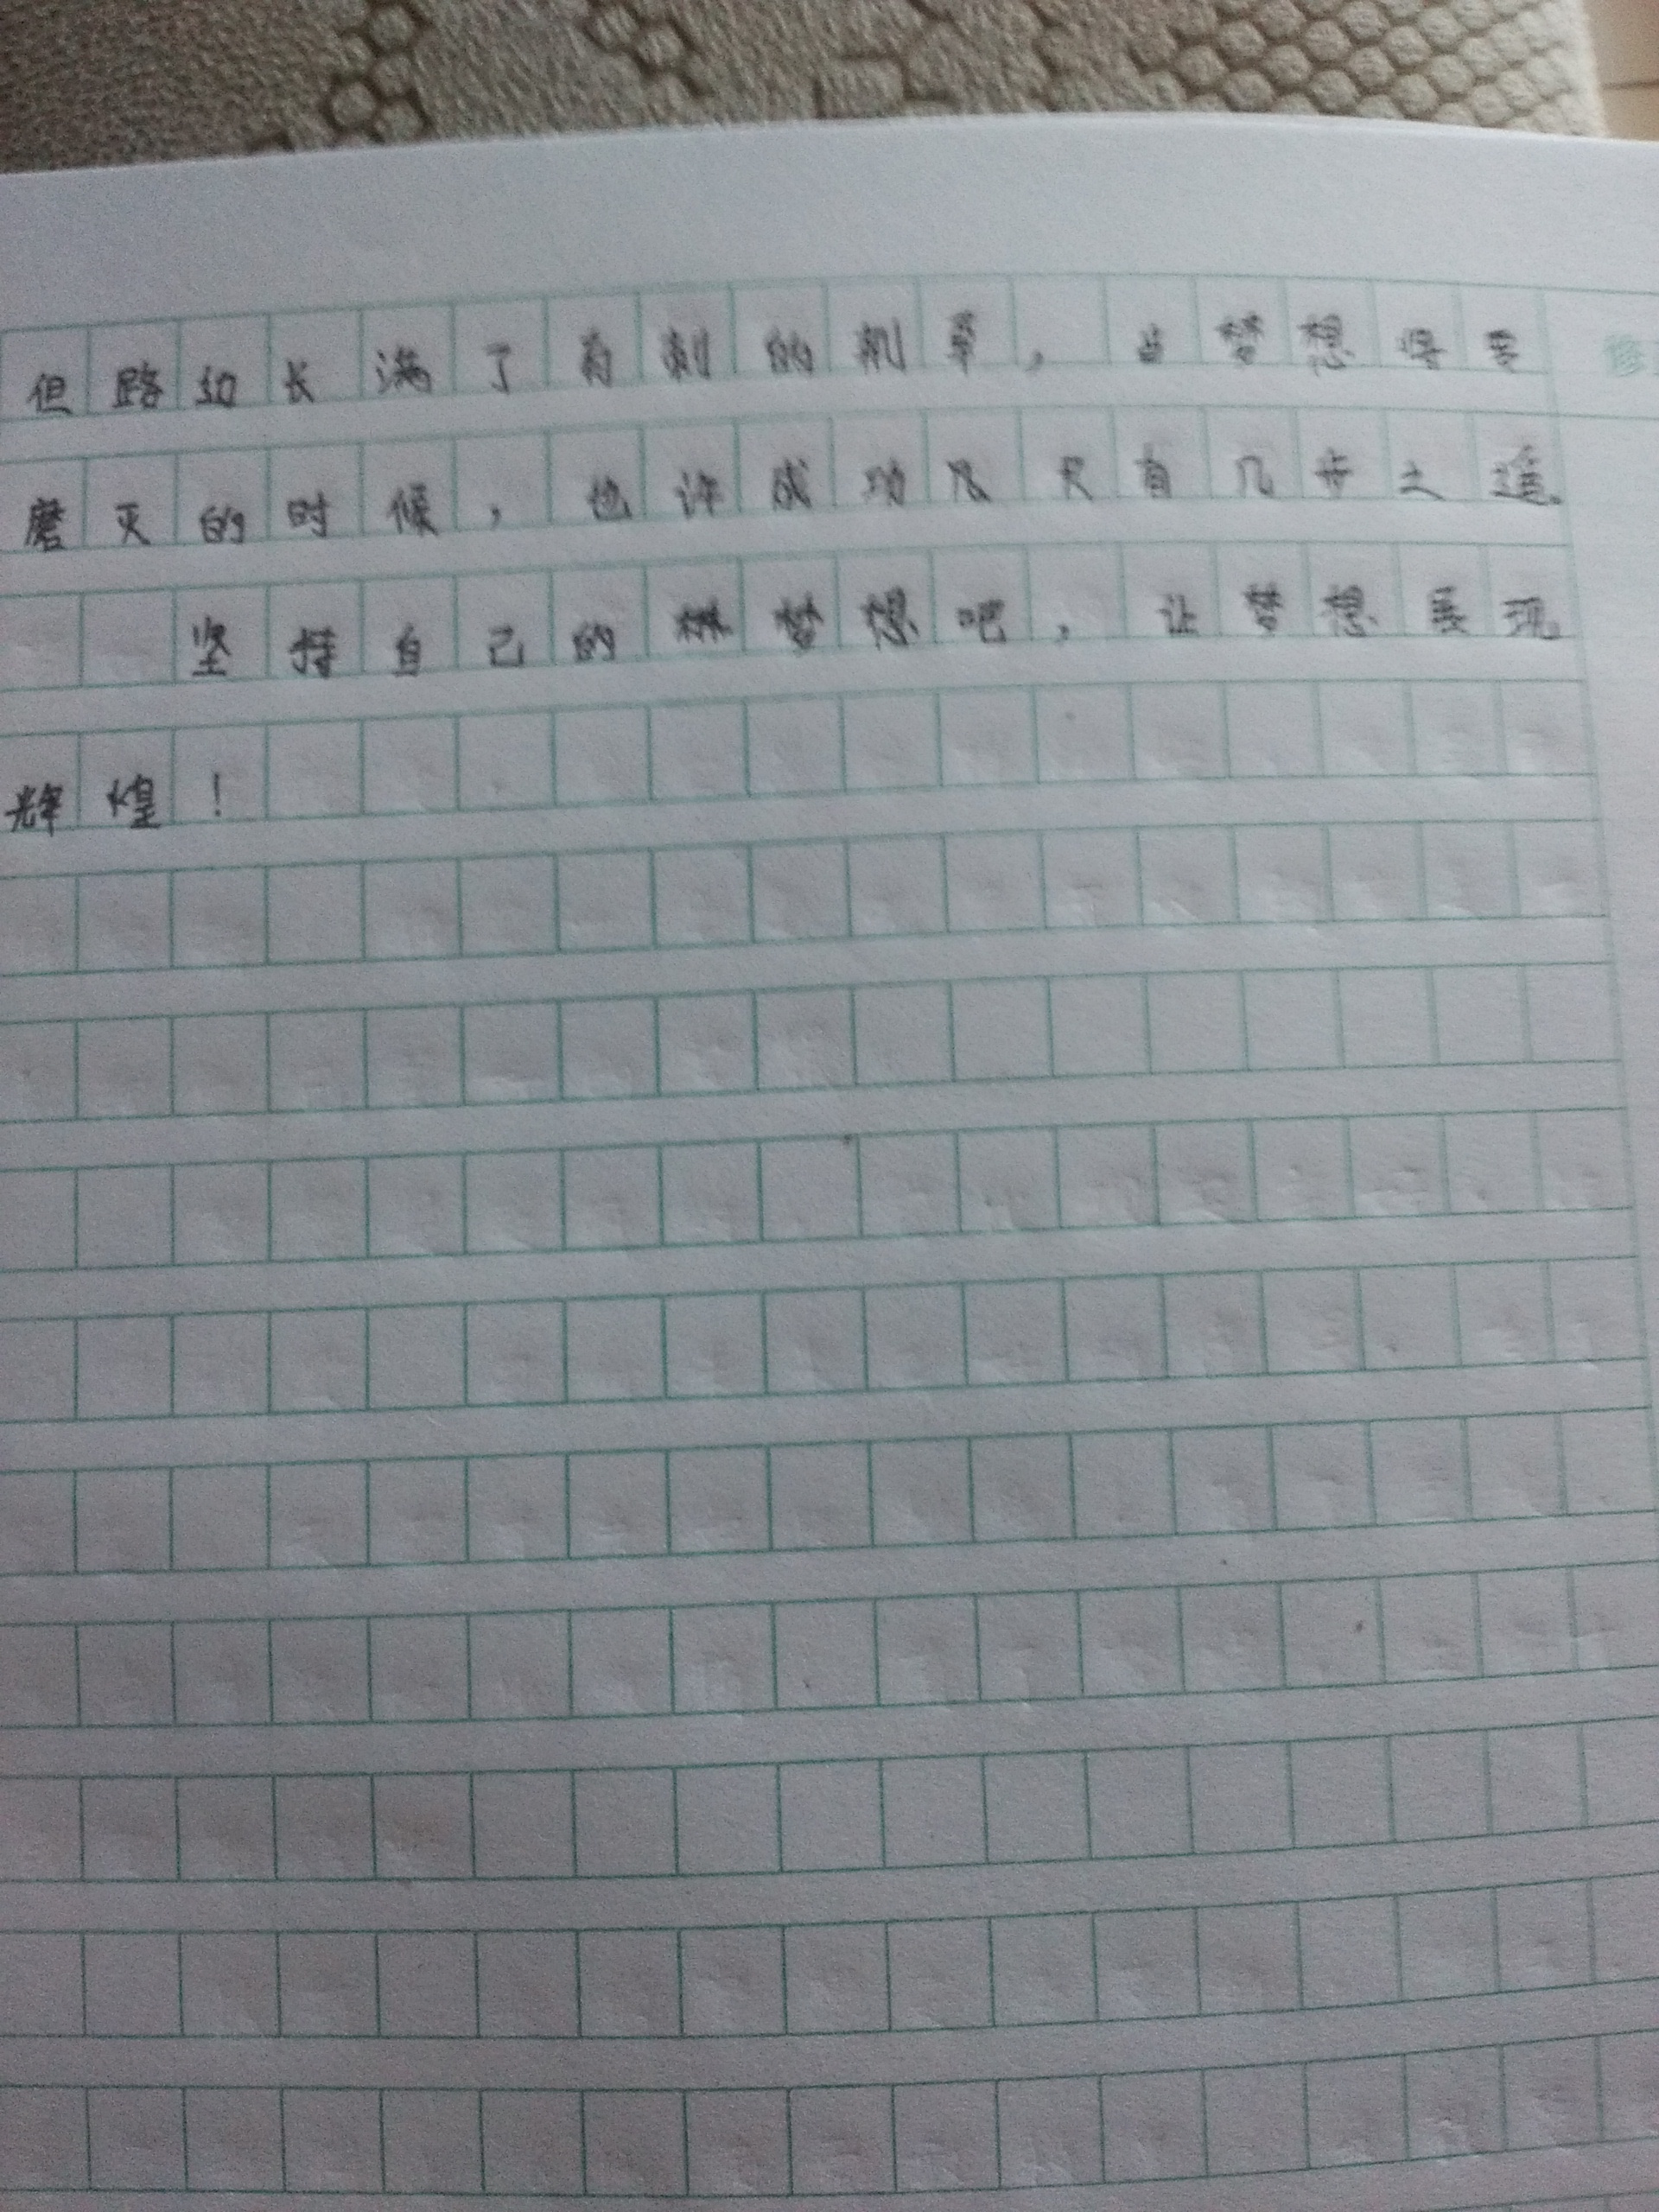 但路边长满了有刺的荆草，当梦想将要
磨灭的时候，也许成功及只有几步之遥。
坚持自己的梦想吧，让梦想展现
辉煌！